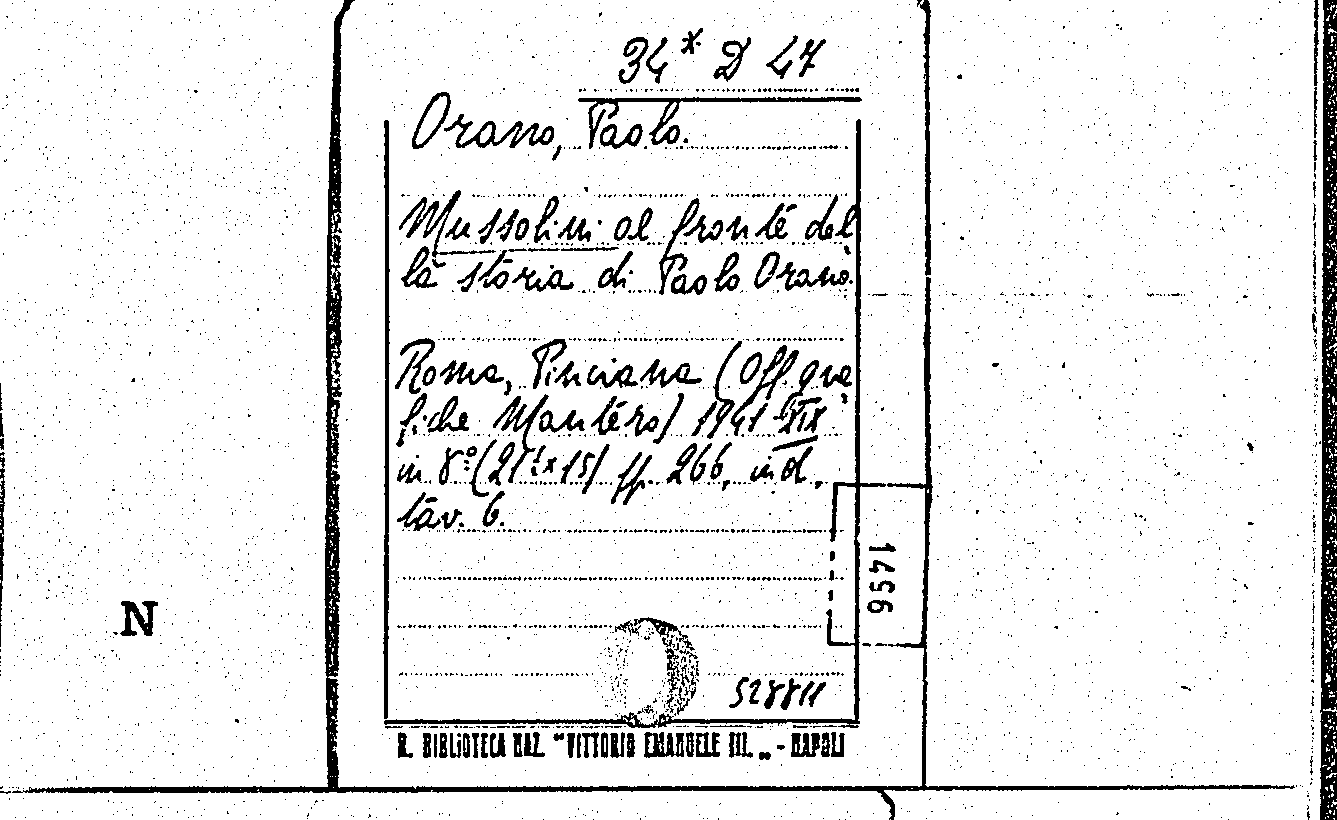 34* D 47
Orano, Paolo.
Mussolini al fronte del
la storia di Paolo Orano.
Roma, Pinciana (Off. gra
fiche Mantero) 1941 XIX
in 8° (21 x 15) pp. 266, ind.,
tav. 6.
1456
N
528811
R. BIBLIOTECA NAZ. "VITTORIO EMANUELE III. „ - NAPOLI